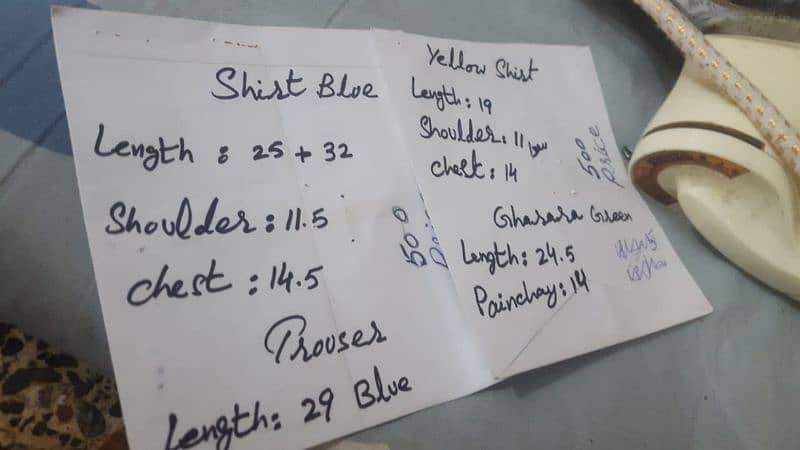 Shirt Blue
Length : 25 + 32
Shoulder : 11.5
Chest : 14.5
500
Trouser
Length : 29 Blue
Yellow Shirt
Length : 19
Shoulder : 11
Chest : 14
500
Price
Gharara Green
Length : 24.5
Painchay : 14